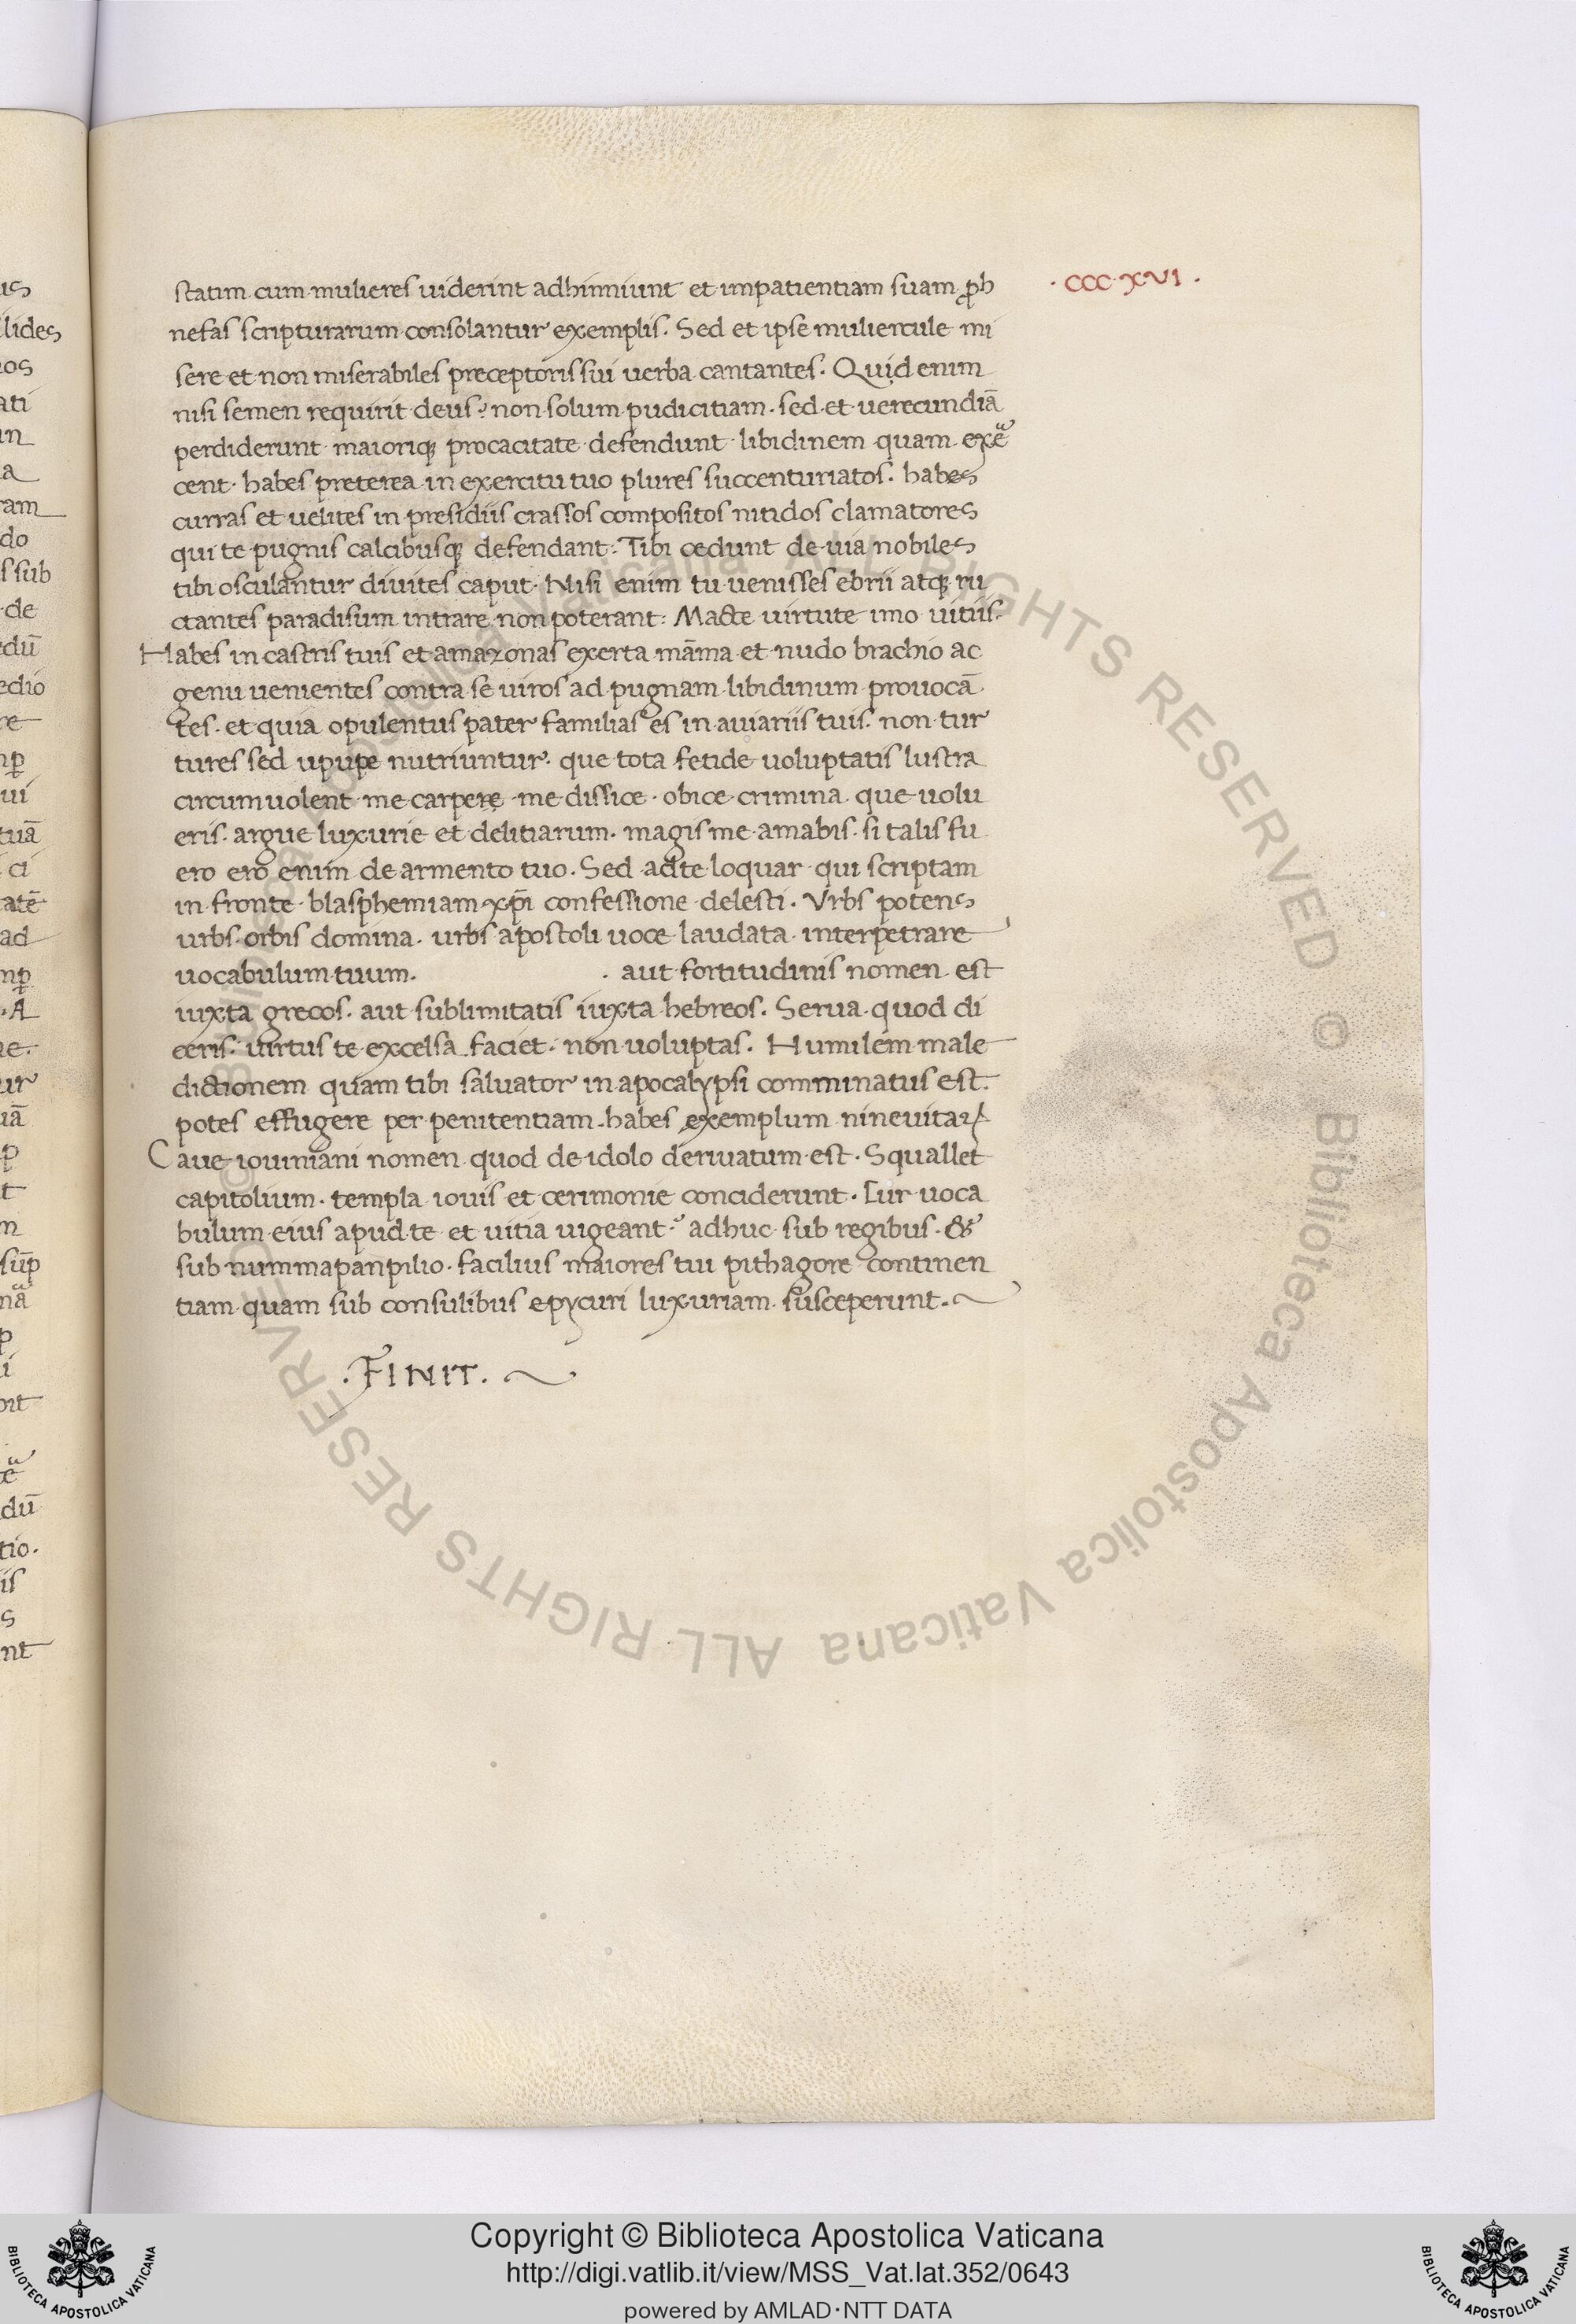 · CCC · XVI ·
statim cum mulieres uiderint adhinniunt et impatientiam suam ꝓh
nefas scripturarum consolantur exemplis. Sed et ipse muliercule mi
sere et non miserabiles preceptoris sui uerba cantantes. Quid enim
nisi semen requirit deus? non solum pudicitiam. sed et uerecundiā
perdiderunt maioriqꝫ procacitate defendunt libidinem quam exe
cent. habes preterea in exercitu tuo plures succenturiatos. habes
curras et uelites in presidiis crassos compositos nitidos clamatores
qui te pugnis calcibusqꝫ defendant. Tibi cedunt de uia nobiles
tibi osculantur diuites caput. Nisi enim tu uenisses ebrii atqꝫ ru
ctantes paradisum intrare non poterant: Macte uirtute imo uitiis.
Habes in castris tuis et amazonas exerta māma et nudo brachio ac
genu uenientes contra se uiros ad pugnam libidinum prouocā
tes. et quia opulentus pater familias es in auiariis tuis. non tur
tures sed upupe nutriuntur. que tota fetide uoluptatis lustra
circumuolent me carpere me dissice. obice crimina que uolu
eris. argue luxurie et delitiarum. magis me amabis. si talis fu
ero ero enim de armento tuo. Sed ad te loquar qui scriptam
in fronte blasphemiam xp̄i confessione delesti. Vrbs potens
urbs orbis domina. urbs apostoli uoce laudata interpetrare
uocabulum tuum. . aut fortitudinis nomen est
iuxta grecos. aut sublimitatis iuxta hebreos. Serua quod di
ceris. uirtus te excelsa faciet. non uoluptas. Humilem male
dictionem quam tibi saluator in apocalypsi comminatus est.
potes effugere per penitentiam. habes exemplum nineuitaꝝ
Caue iouiniani nomen quod de idolo deriuatum est. Squallet
capitolium. templa iouis et cerimonie conciderunt. Cur uoca
bulum eius apud te et uitia uigeant? adhuc sub regibus. &
sub numma panpilio. facilius maiores tui pithagore continen
tiam quam sub consulibus epycuri luxuriam susceperunt.
. FINIT.
ALL RIGHTS RESERVED © Biblioteca Apostolica Vaticana ALL RIGHTS RESERVED © Biblioteca Apostolica Vaticana
Copyright © Biblioteca Apostolica Vaticana
http://digi.vatlib.it/view/MSS_Vat.lat.352/0643
powered by AMLAD·NTT DATA
BIBLIOTECA APOSTOLICA VATICANA
BIBLIOTECA APOSTOLICA VATICANA